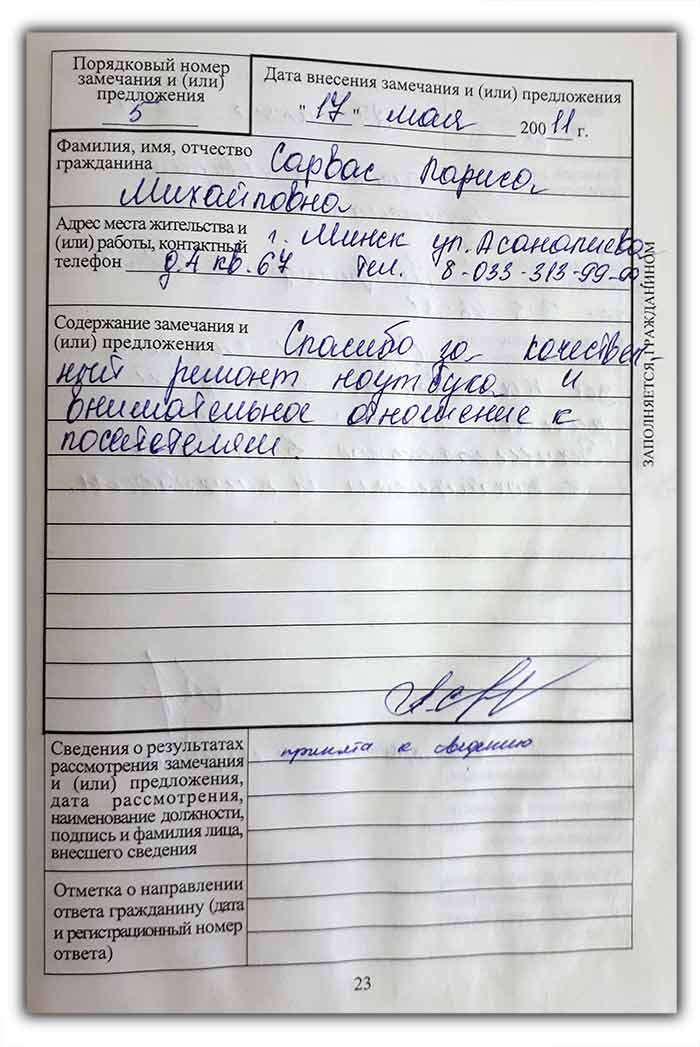 Порядковый номер
замечания и (или)
предложения
5
Дата внесения замечания и (или) предложения
"17" мая 20011 г.
Фамилия, имя, отчество
гражданина Сарвас Лариса
Михайловна
Адрес места жительства и
(или) работы, контактный г. Минск ул. Асаналиева
телефон д.4 кв.67 тел. 8-033-313-99-99
Содержание замечания и
(или) предложения Спасибо за качествен-
ный ремонт ноутбука и
внимательное отношение к
посетителям.
ЗАПОЛНЯЕТСЯ ГРАЖДАНИНОМ
Сведения о результатах принята к сведению
рассмотрения замечания
и (или) предложения,
дата рассмотрения,
наименование должности,
подпись и фамилия лица,
внесшего сведения
Отметка о направлении
ответа гражданину (дата
и регистрационный номер
ответа)
23